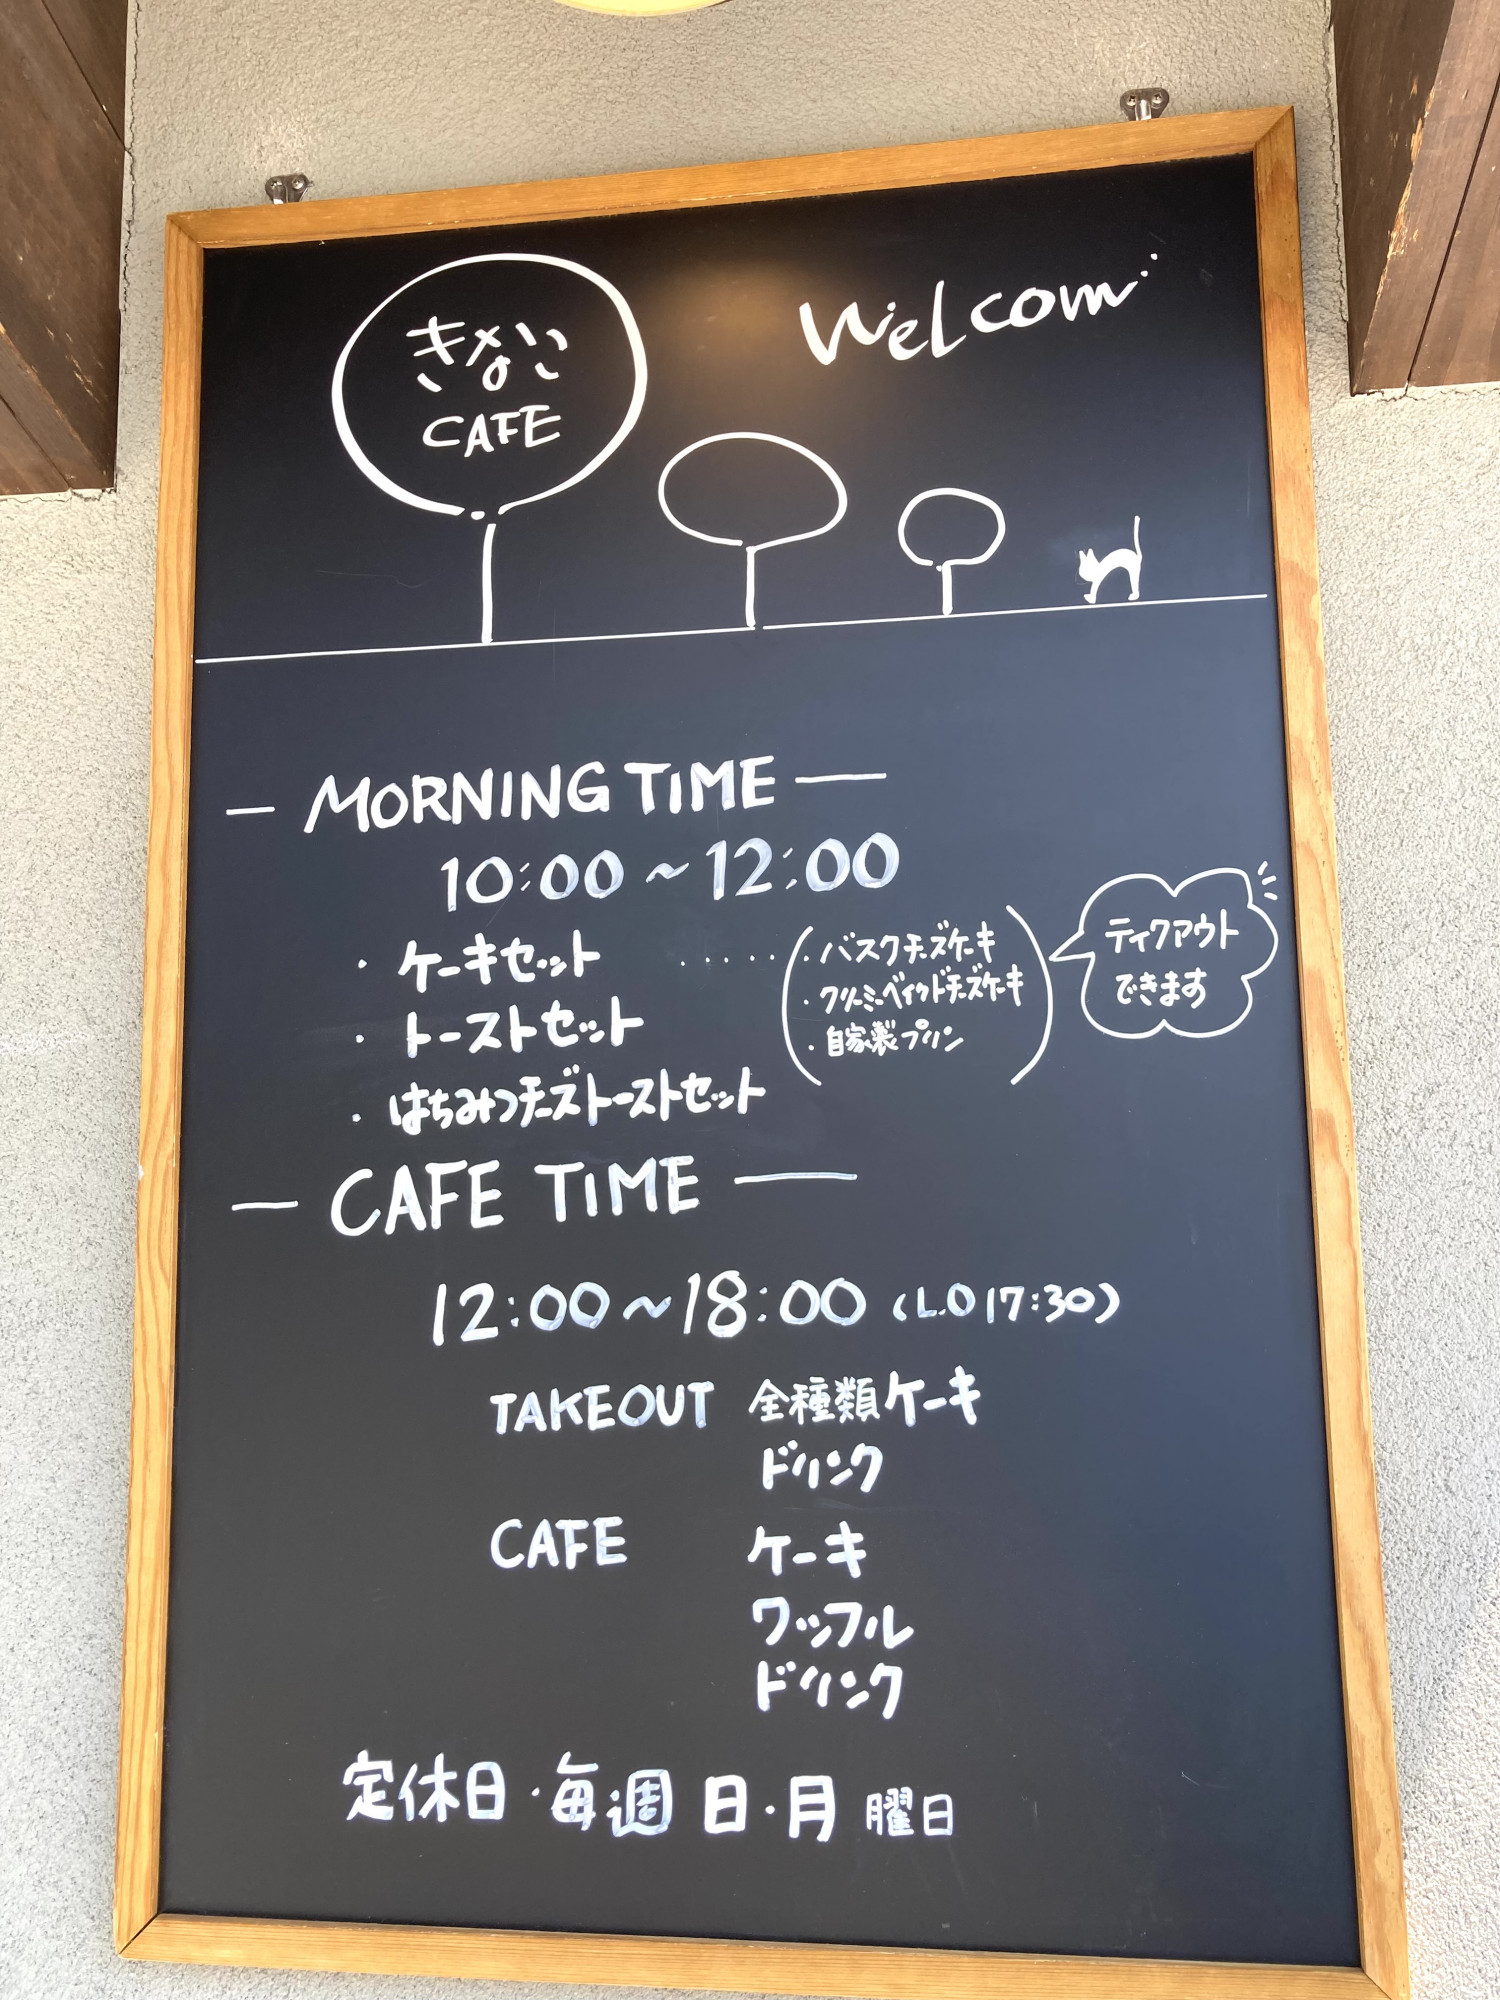 きなこ
CAFE
Welcom
— MORNING TIME —
10:00～12:00
・ケーキセット ・・・・・
・バスクチーズケーキ
・クリーミーベイクドチーズケーキ
・自家製プリン
ティクアウト
できます
・トーストセット
・はちみつチーズトーストセット
— CAFE TIME —
12:00～18:00 (L.O 17:30)
TAKEOUT 全種類ケーキ
ドリンク
CAFE ケーキ
ワッフル
ドリンク
定休日・毎週 日・月 曜日